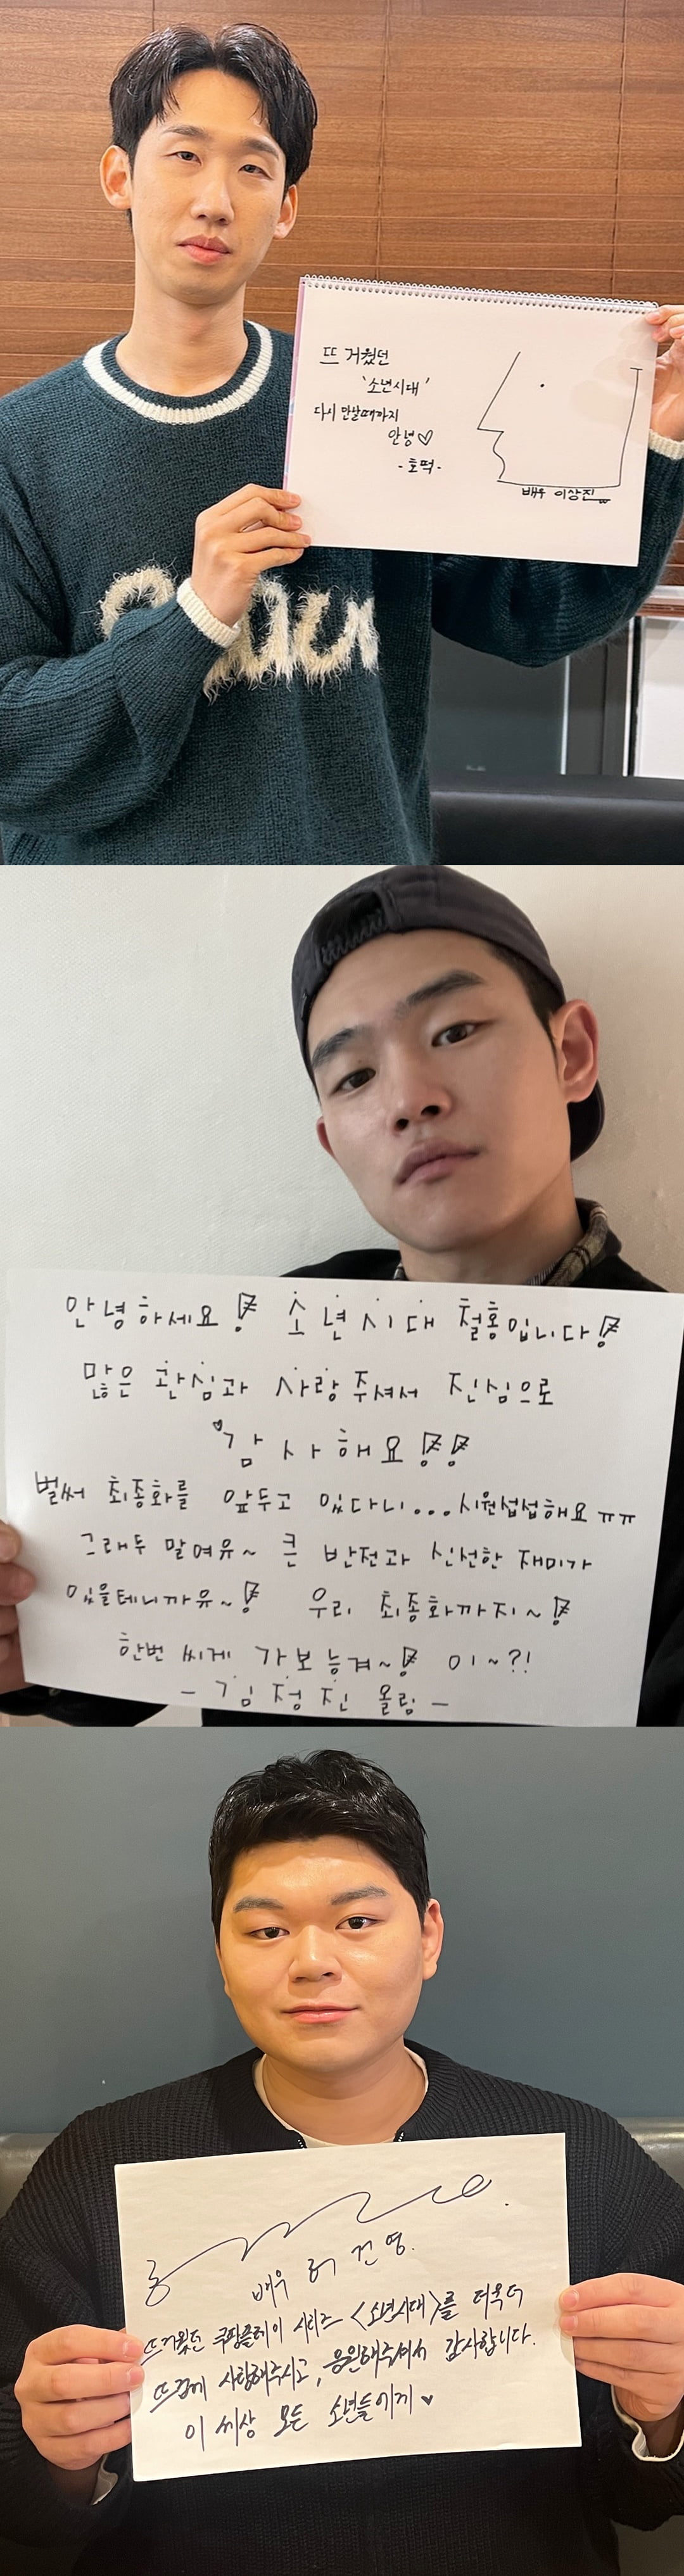 뜨거웠던
'소년시대'
다시 만날때까지
안녕♡
-호떡-
배우 이상진
안녕하세요! 소년시대 철홍입니다!
많은 관심과 사랑 주셔서 진심으로
감사해요!!
벌써 최종화를 앞두고 있다니...시원섭섭해요 ㅠㅠ
그래두 말여유~ 큰 반전과 신선한 재미가
있을테니까유~! 우리 최종화까지~!
한번 씨게 가보능겨~! 이~?!
- 김정진 올림 -
배우 허건영.
뜨거웠던 쿠팡플레이 시리즈 <소년시대>를 더욱더
뜨겁게 사랑해주시고, 응원해주셔서 감사합니다.
이 세상 모든 소년들에게 ♥